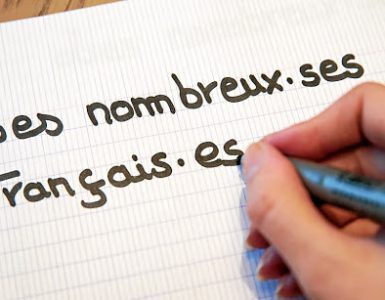 nombreux·ses
Français·es